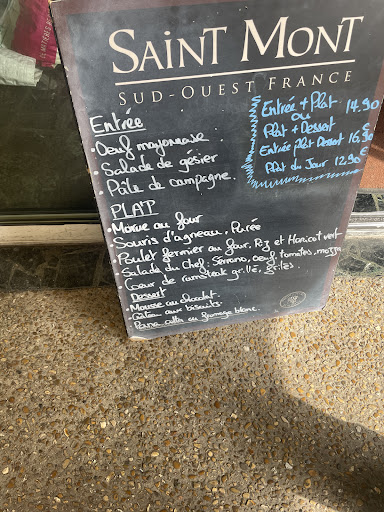 SAINT MONT
SUD-OUEST FRANCE
Entrée
- Oeuf mayonnaise
- Salade de gésier
- Pâté de campagne.
PLAT
- Morue au four
- Souris d'agneau, Purée
- Poulet fermier au four, Riz et Haricot vert
- Salade du Chef: Serano, oeuf, tomates, mozza
- Coeur de rumsteak grillé, frites.
Dessert
- Mousse au chocolat.
- Gâteau aux biscuits.
- Pana cotta au fromage blanc.
Entrée + Plat 14,90
ou
Plat + Dessert
Entrée Plat Dessert 16,90
Plat du Jour 12,90 €